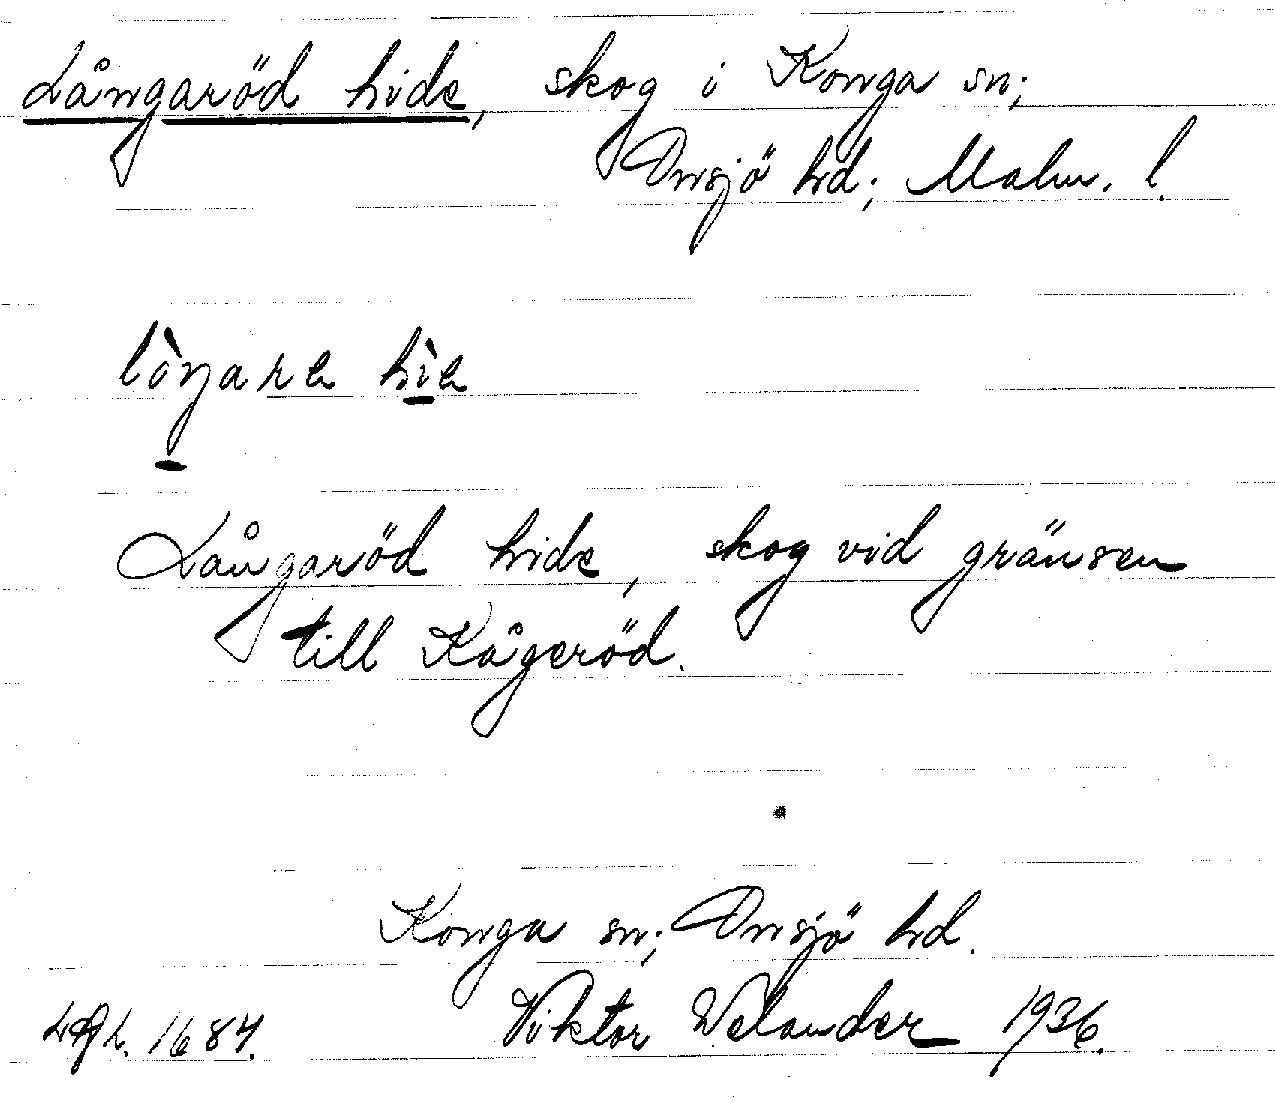 Långaröd hide, skog i Konga sn;
Onsjö hd; Malm. l.
lòŋare hìe
Långaröd hide, skog vid gränsen
till Kågeröd.
Konga sn; Onsjö hd.
Viktor Welander 1936.
1684.